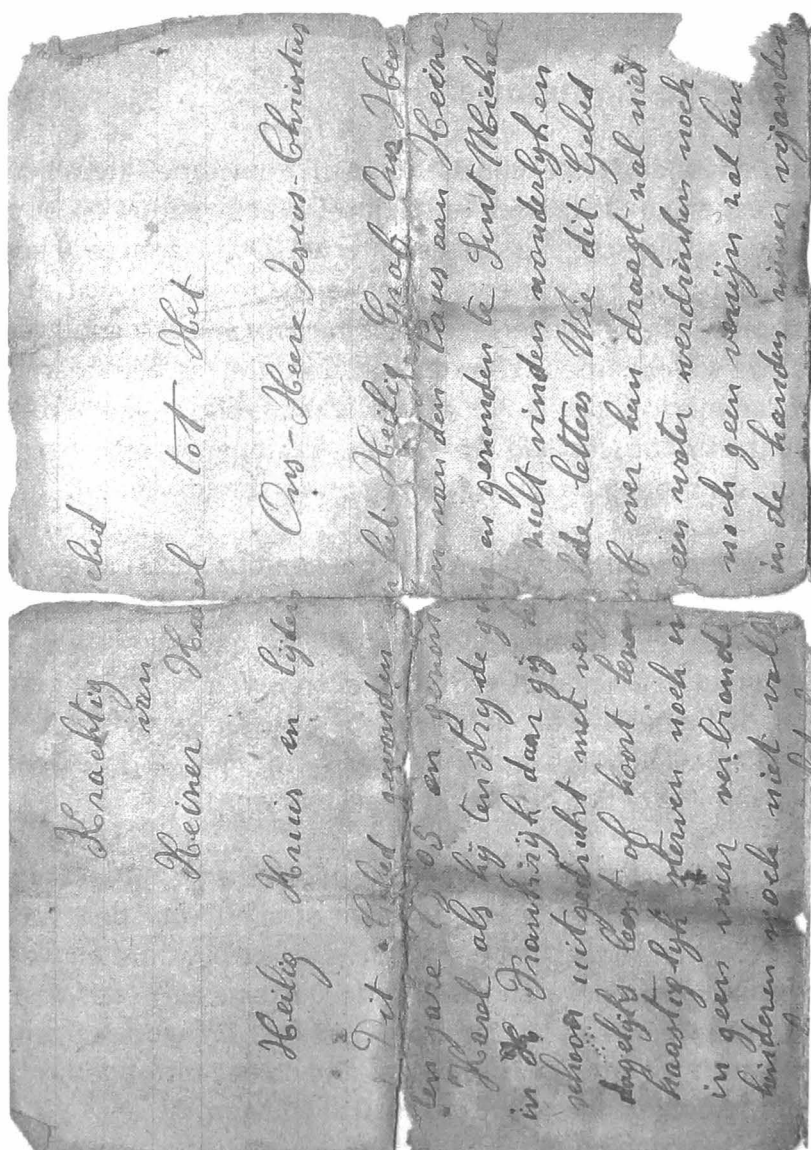 Krachtig ebed
van
Keizer Karel tot Het
Heilig Kruis en lijden Ons-Heere Jesus-Christus
Dit Gebed gevonden het Heilig Graf Ons Heer
ten jare 505 en gezon en van den Paus aan Keizer
Karel als hij ten strijde en gezonden te Sint Michiel
in Frankrijk daar gij zult vinden wonderlyk en
schoon uitgedrukt met de letters Wie dit Gebed
dagelijks leest of hoort leze of over hem draagt zal niet
haastiglyk sterven noch in een water verdrinken noch
in geen vuur verbrand noch geen venijn zal hem
hinderen noch niet vall in de handen zijner vijanden